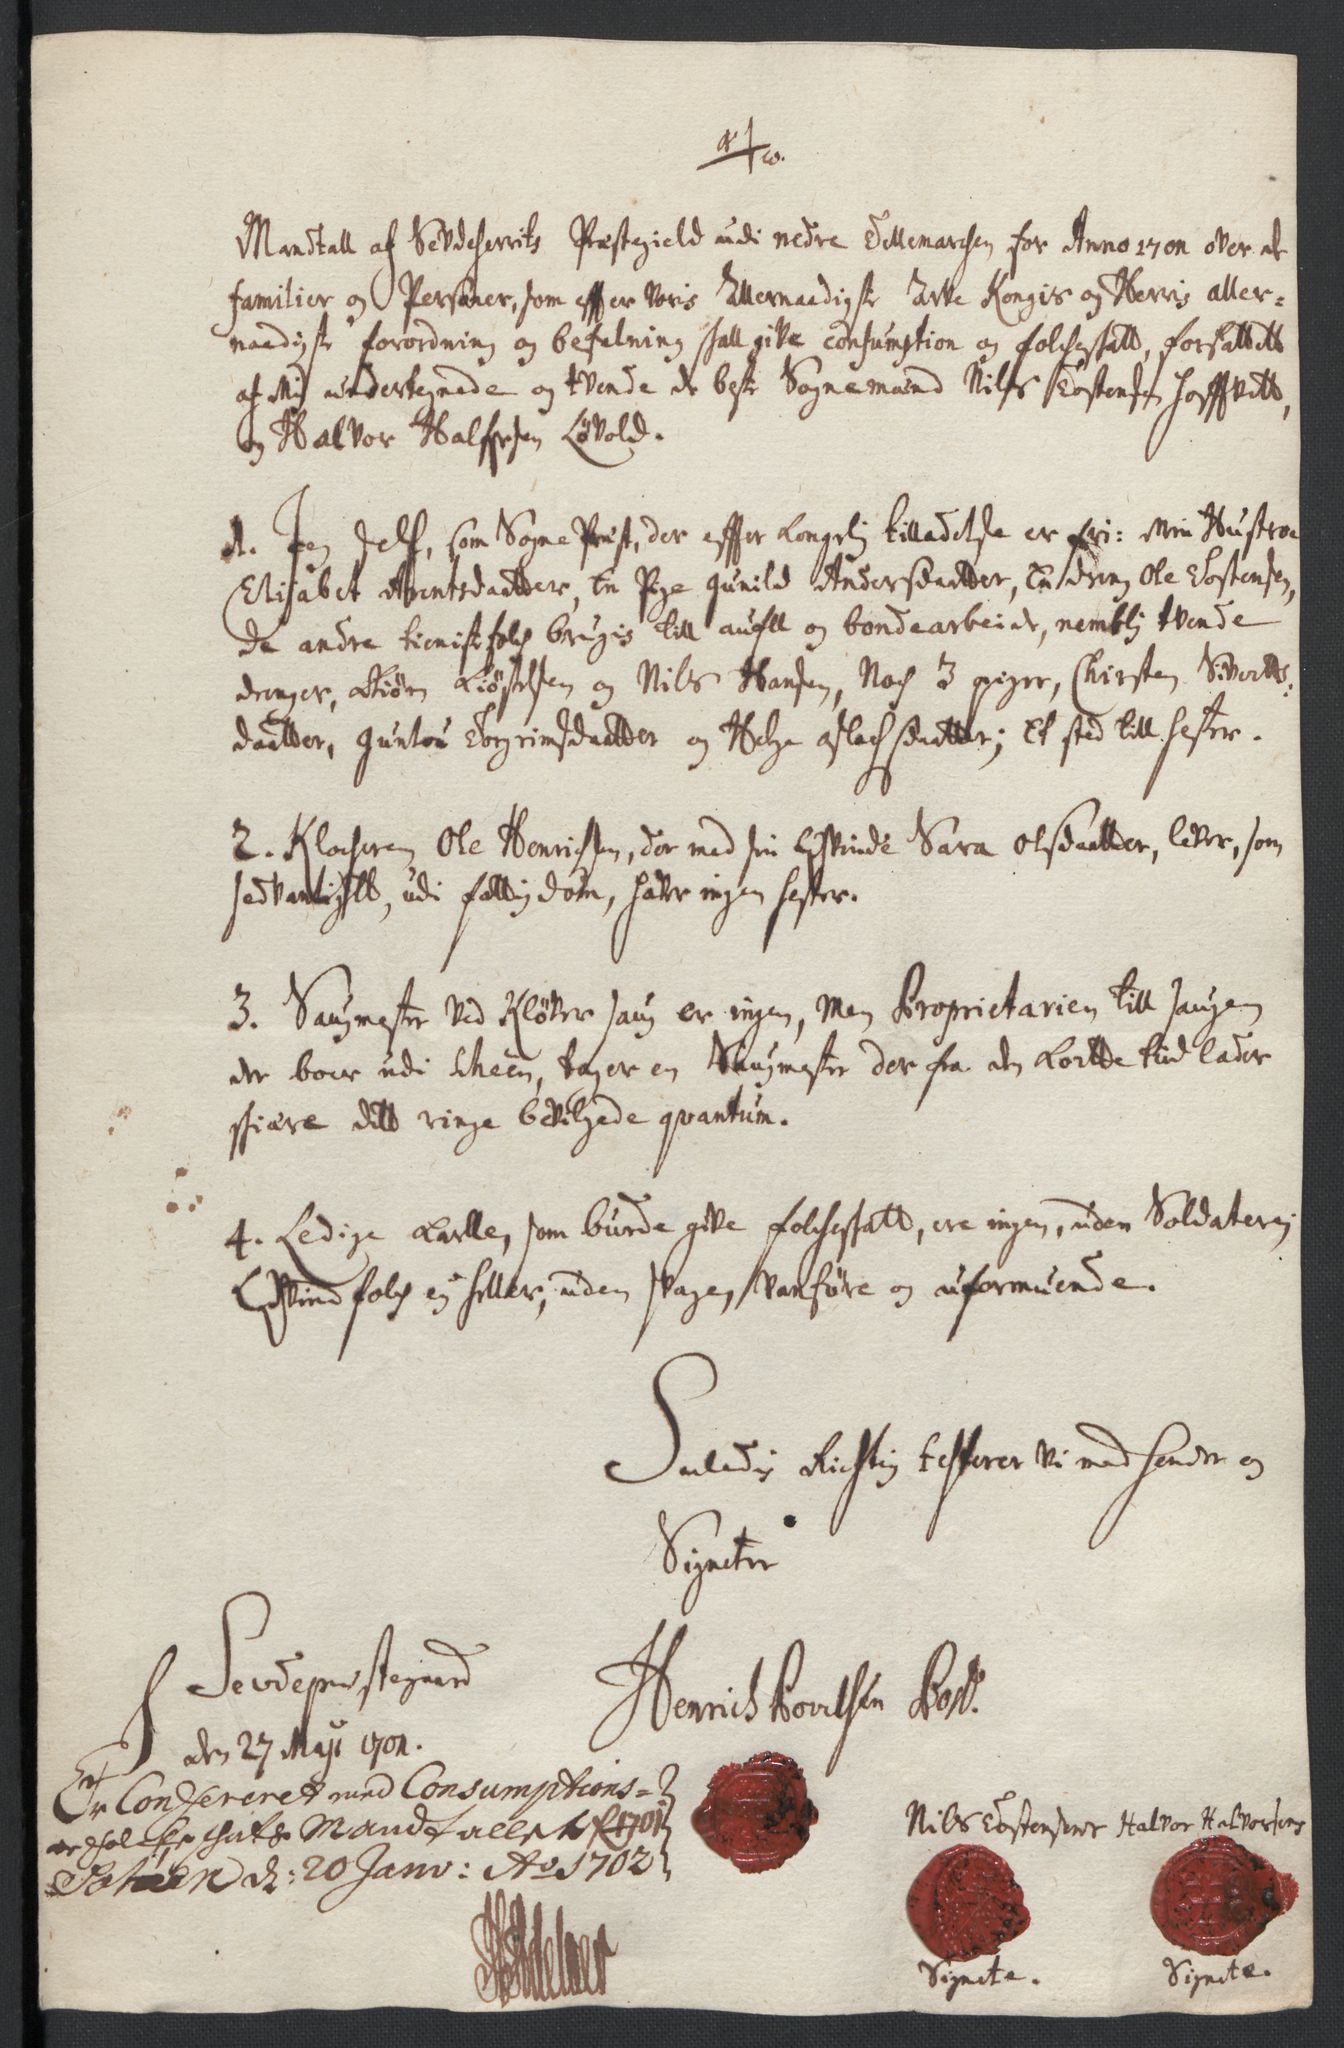 Mandtall af Sevdeherrits Præstegield udi nedre Tellemarchen for Anno 1701 over de
familier og Persåner, som effter voris Allernaadigste Arve Kongis og Herris aller=
naadigste forordning og befalning skall give consumption og folcheskatt, forfattett
af Mig underteignede og tvende de beste Sognemænd Nils Tostensen Hofftvett,
og Halvor Halfvorsen Løvold.
1. Jeg self, som Sogne Præst, der effter Kongelig tilladelse er fri: Min Hustrue
Elisabet Arentsdaatter, En Pige Gunild Andersdaatter, En dreng Ole Tostensen,
De andre tienistfolch brugis till aufll og bondearbeide, nemblig tvende
drenger, Biörn Kiöstelsen og Nils Hansen, Noch 3 piger, Chirsten Siverts:
daatter, Guntou Torgrimsdaatter og Helge Aslachsdaatter; Et sted till hester.
2. Klocheren Ole Henrichsen, der med sin Qvinde Sara Olsdaatter, lever, som
sedvanligstt, udi fattigdom, haver ingen hester.
3. Saugmester ved Kløver saug er ingen, Men Proprietarien till saugen
der boer udi Scheen, tager en Saugmester der fra den kortte tiid lader
skiære ditt ringe bevilgede qvantum.
4. Ledige Karlle, som burde give folcheskatt, ere ingen, uden Soldater; ej
Qvindfolch ej heller, uden svage, vanføre og uformuende.
Saaledis Richtig testerer vi med hender og
Signeter
Sevdepræstegaard
den 27 Maji 1701.
Henrich Povelsen
Er Confereret med Consumptions=
och folcheskats Mandtallet 1701
Scheen d: 20 Janv: Ao 1702
Nils Tostensens Halvor Halvorsens
Signete. Signete.